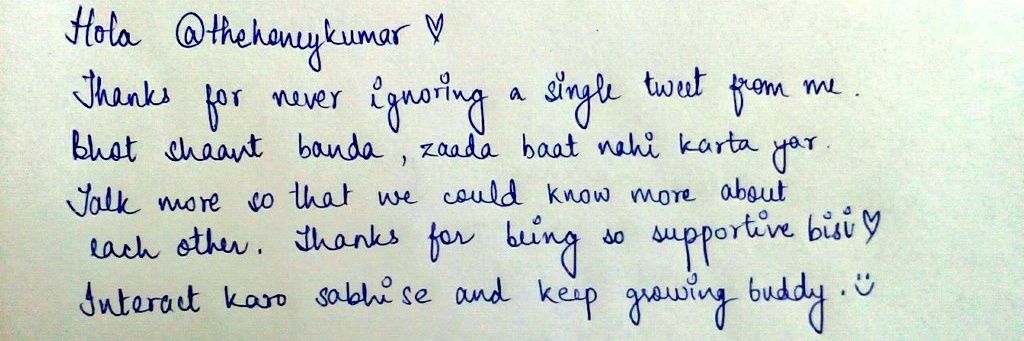 Hola @thehoneykumar ♡
Thanks for never ignoring a single tweet from me.
Bhot shaant banda, zaada baat nahi karta yar.
Talk more so that we could know more about
each other. Thanks for being so supportive bisi ♡
Interact karo sabhi se and keep growing buddy. :)